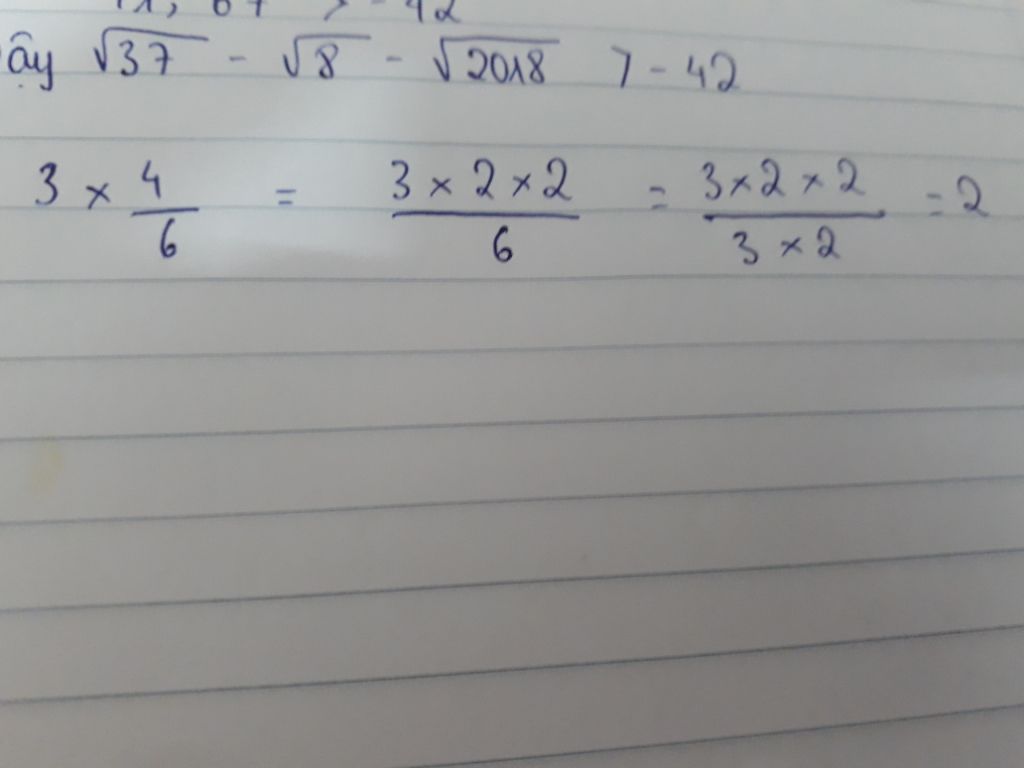 67 > - 42
ậy √37 - √8 - √2018 > - 42
3 × 4/6 = 3 × 2 × 2/6 = 3 × 2 × 2/3 × 2 = 2